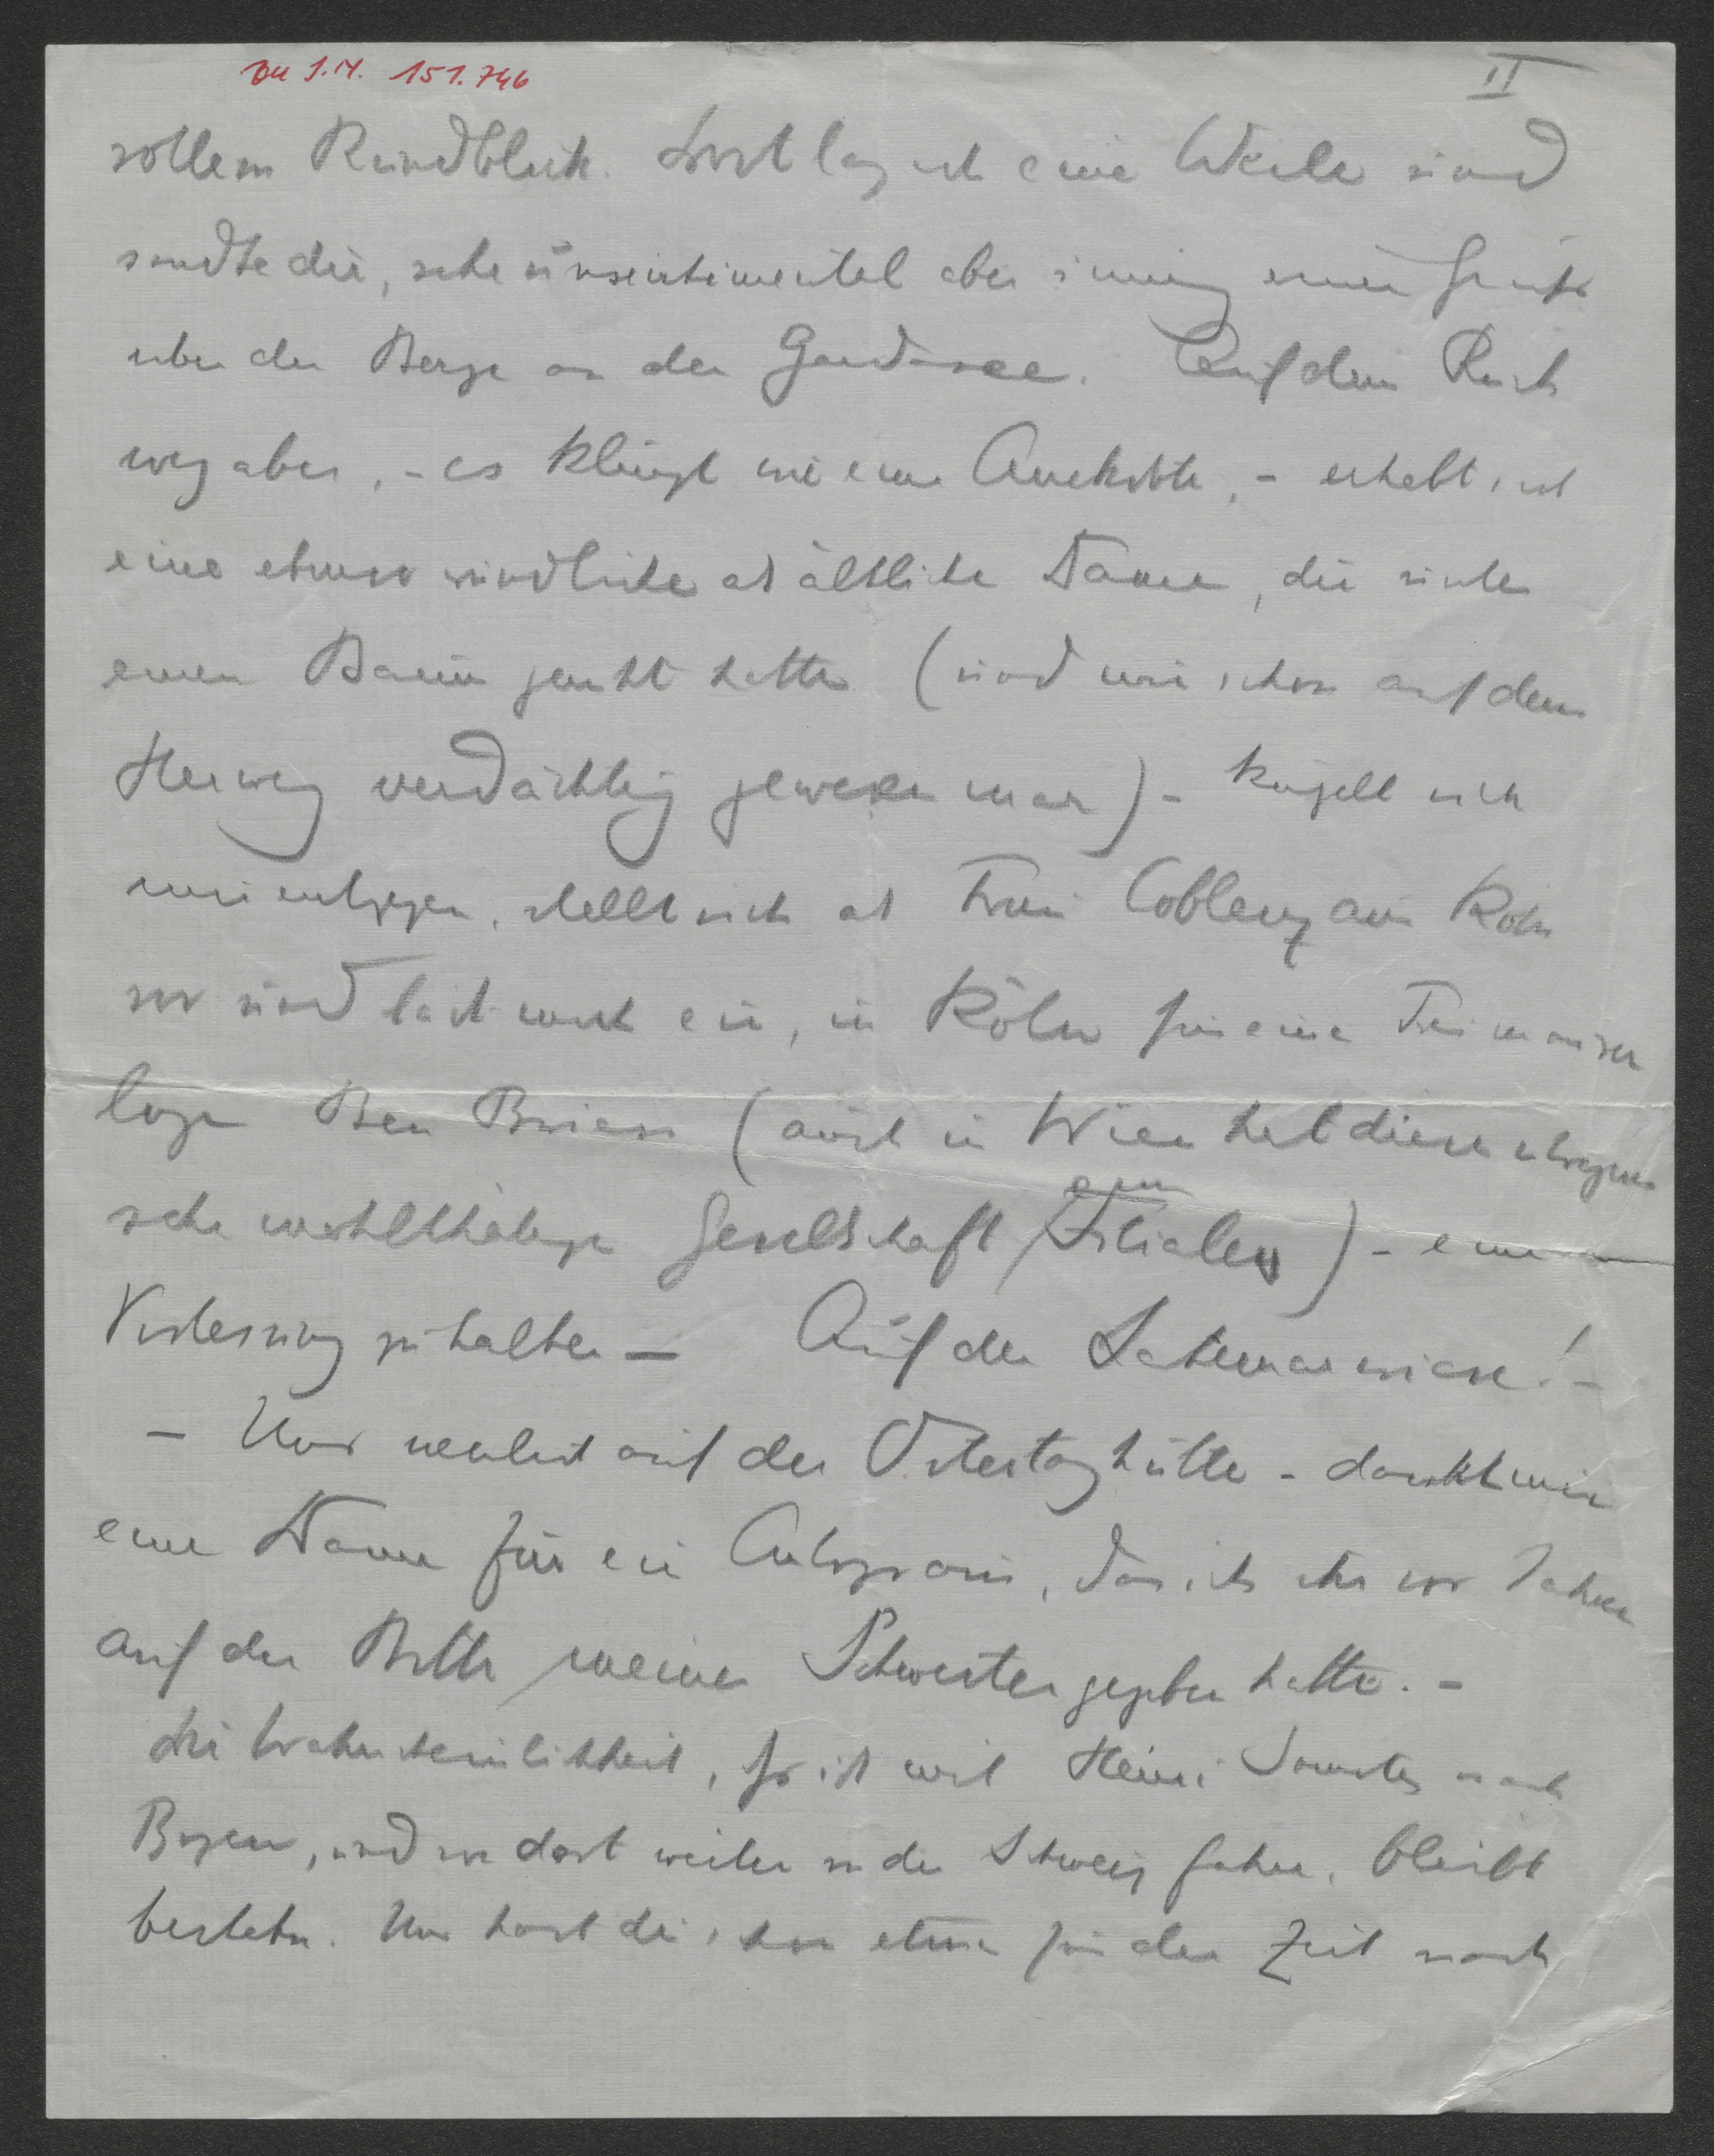 Zu I.N. 151.746
II
vollem Rundblick. Dort lag ich eine Weile und
sandte dir, sehr unsentimental aber innig einen Gruß
über die Berge an den Gardasee. Auf dem Rück
weg aber, - es klingt wie eine Anekdote, - erhebt sich
eine etwas rundliche als ältliche Dame, die unter
einem Baum geruht hatte (und mir schon auf dem
Herweg verdächtig gewesen war) - kugelt sich
mir entgegen, stellt sich als Frau Coblenz aus Köln
vor und lädt mich ein, in Köln für eine Freimaurer
loge Ben Briess (auch in Wien hat diese übrigens
sehr wohlthätige Gesellschaft eine Filiale) - eine
Vorlesung zu halten — Auf der Latemarwiese! -
- Und neulich auf der Ostertaghütte - dankt mir
eine Dame für ein Autogram, das ich ihr vor Jahren
auf der Bitte meiner Schwester gegeben hatte. -
Die Wahrscheinlichkeit, daß ich mit Heini Samstag nach
Bozen, und von dort weiter in die Schweiz fahre, bleibt
bestehn. Nun hast du schon etwas für die Zeit nach